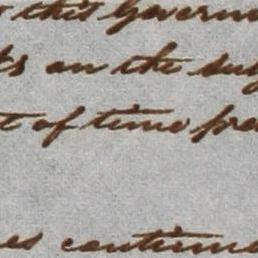 this Govern
on the sub
t of time pre
es continue